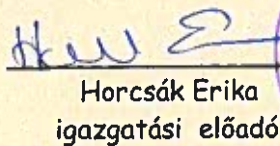 Horcsák Erika
igazgatási előadó